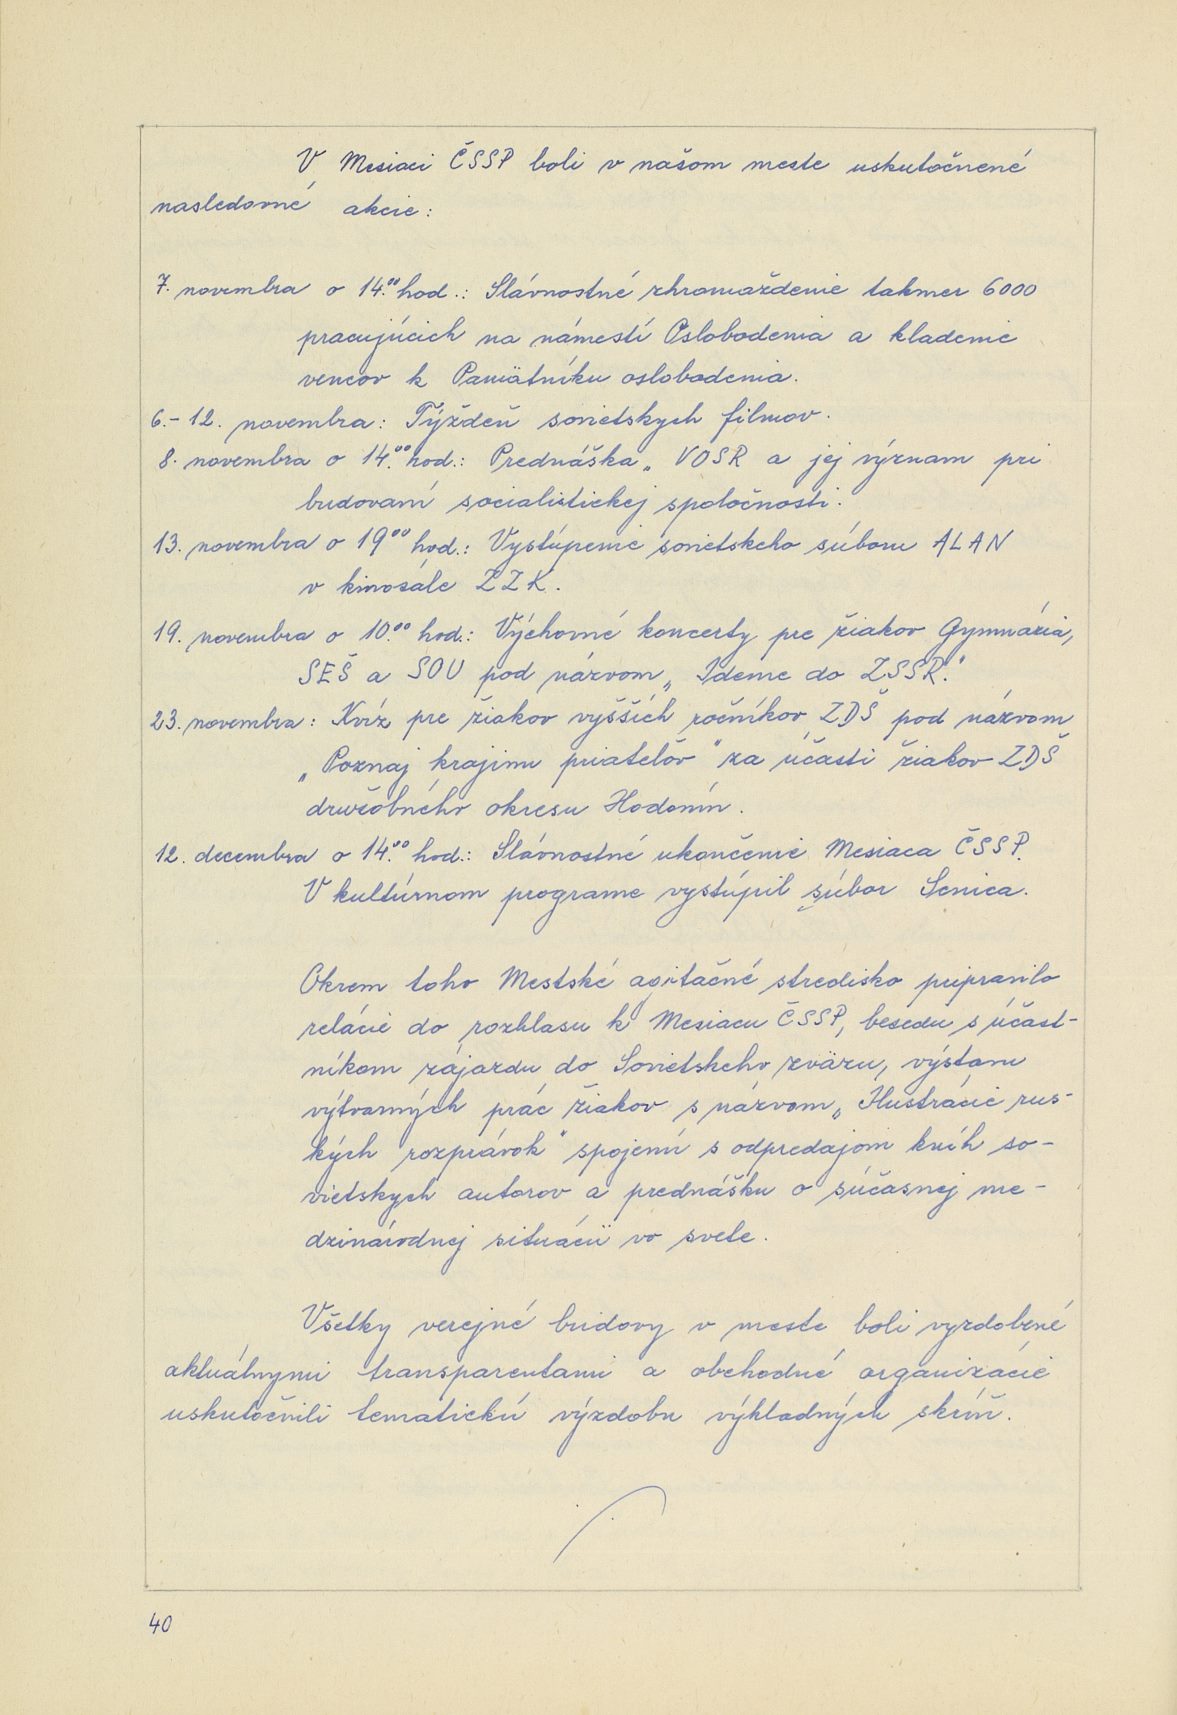 V Mesiaci ČSSP boli v našom meste uskutočnené
nasledovné akcie:
7. novembra o 14.00 hod.: Slávnostné zhromaždenie takmer 6000
pracujúcich na námestí Oslobodenia a kladenie
vencov k Pamätníku oslobodenia.
6.-12. novembra: Týždeň sovietskych filmov.
8. novembra o 14.00 hod.: Prednáška „ VOSR a jej význam pri
budovaní socialistickej spoločnosti.
13. novembra o 19.00 hod.: Vystúpenie sovietskeho súboru ALAN
v kinosále ZZK.
19. novembra o 10.00 hod.: Výchovné koncerty pre žiakov Gymnázia,
SEŠ a SOU pod názvom „ Ideme do ZSSR."
23. novembra: Kvíz pre žiakov vyšších ročníkov ZDŠ pod názvom
„Poznaj krajinu priateľov" za účasti žiakov ZDŠ
družobného okresu Hodonín.
12. decembra o 14.00 hod.: Slávnostné ukončenie Mesiaca ČSSP.
V kultúrnom programe vystúpil súbor Senica.
Okrem toho Mestské agitačné stredisko pripravilo
relácie do rozhlasu k Mesiacu ČSSP, besedu s účast-
níkom zájazdu do Sovietskeho zväzu, výstavu
výtvarných prác žiakov s názvom „ Ilustrácie rus-
kých rozprávok" spojenú s odpredajom kníh so-
vietskych autorov a prednášku o súčasnej me-
dzinárodnej situácii vo svete.
Všetky verejné budovy v meste boli vyzdobené
aktuálnymi transparentami a obchodné organizácie
uskutočnili tematickú výzdobu výkladných skríň.
40